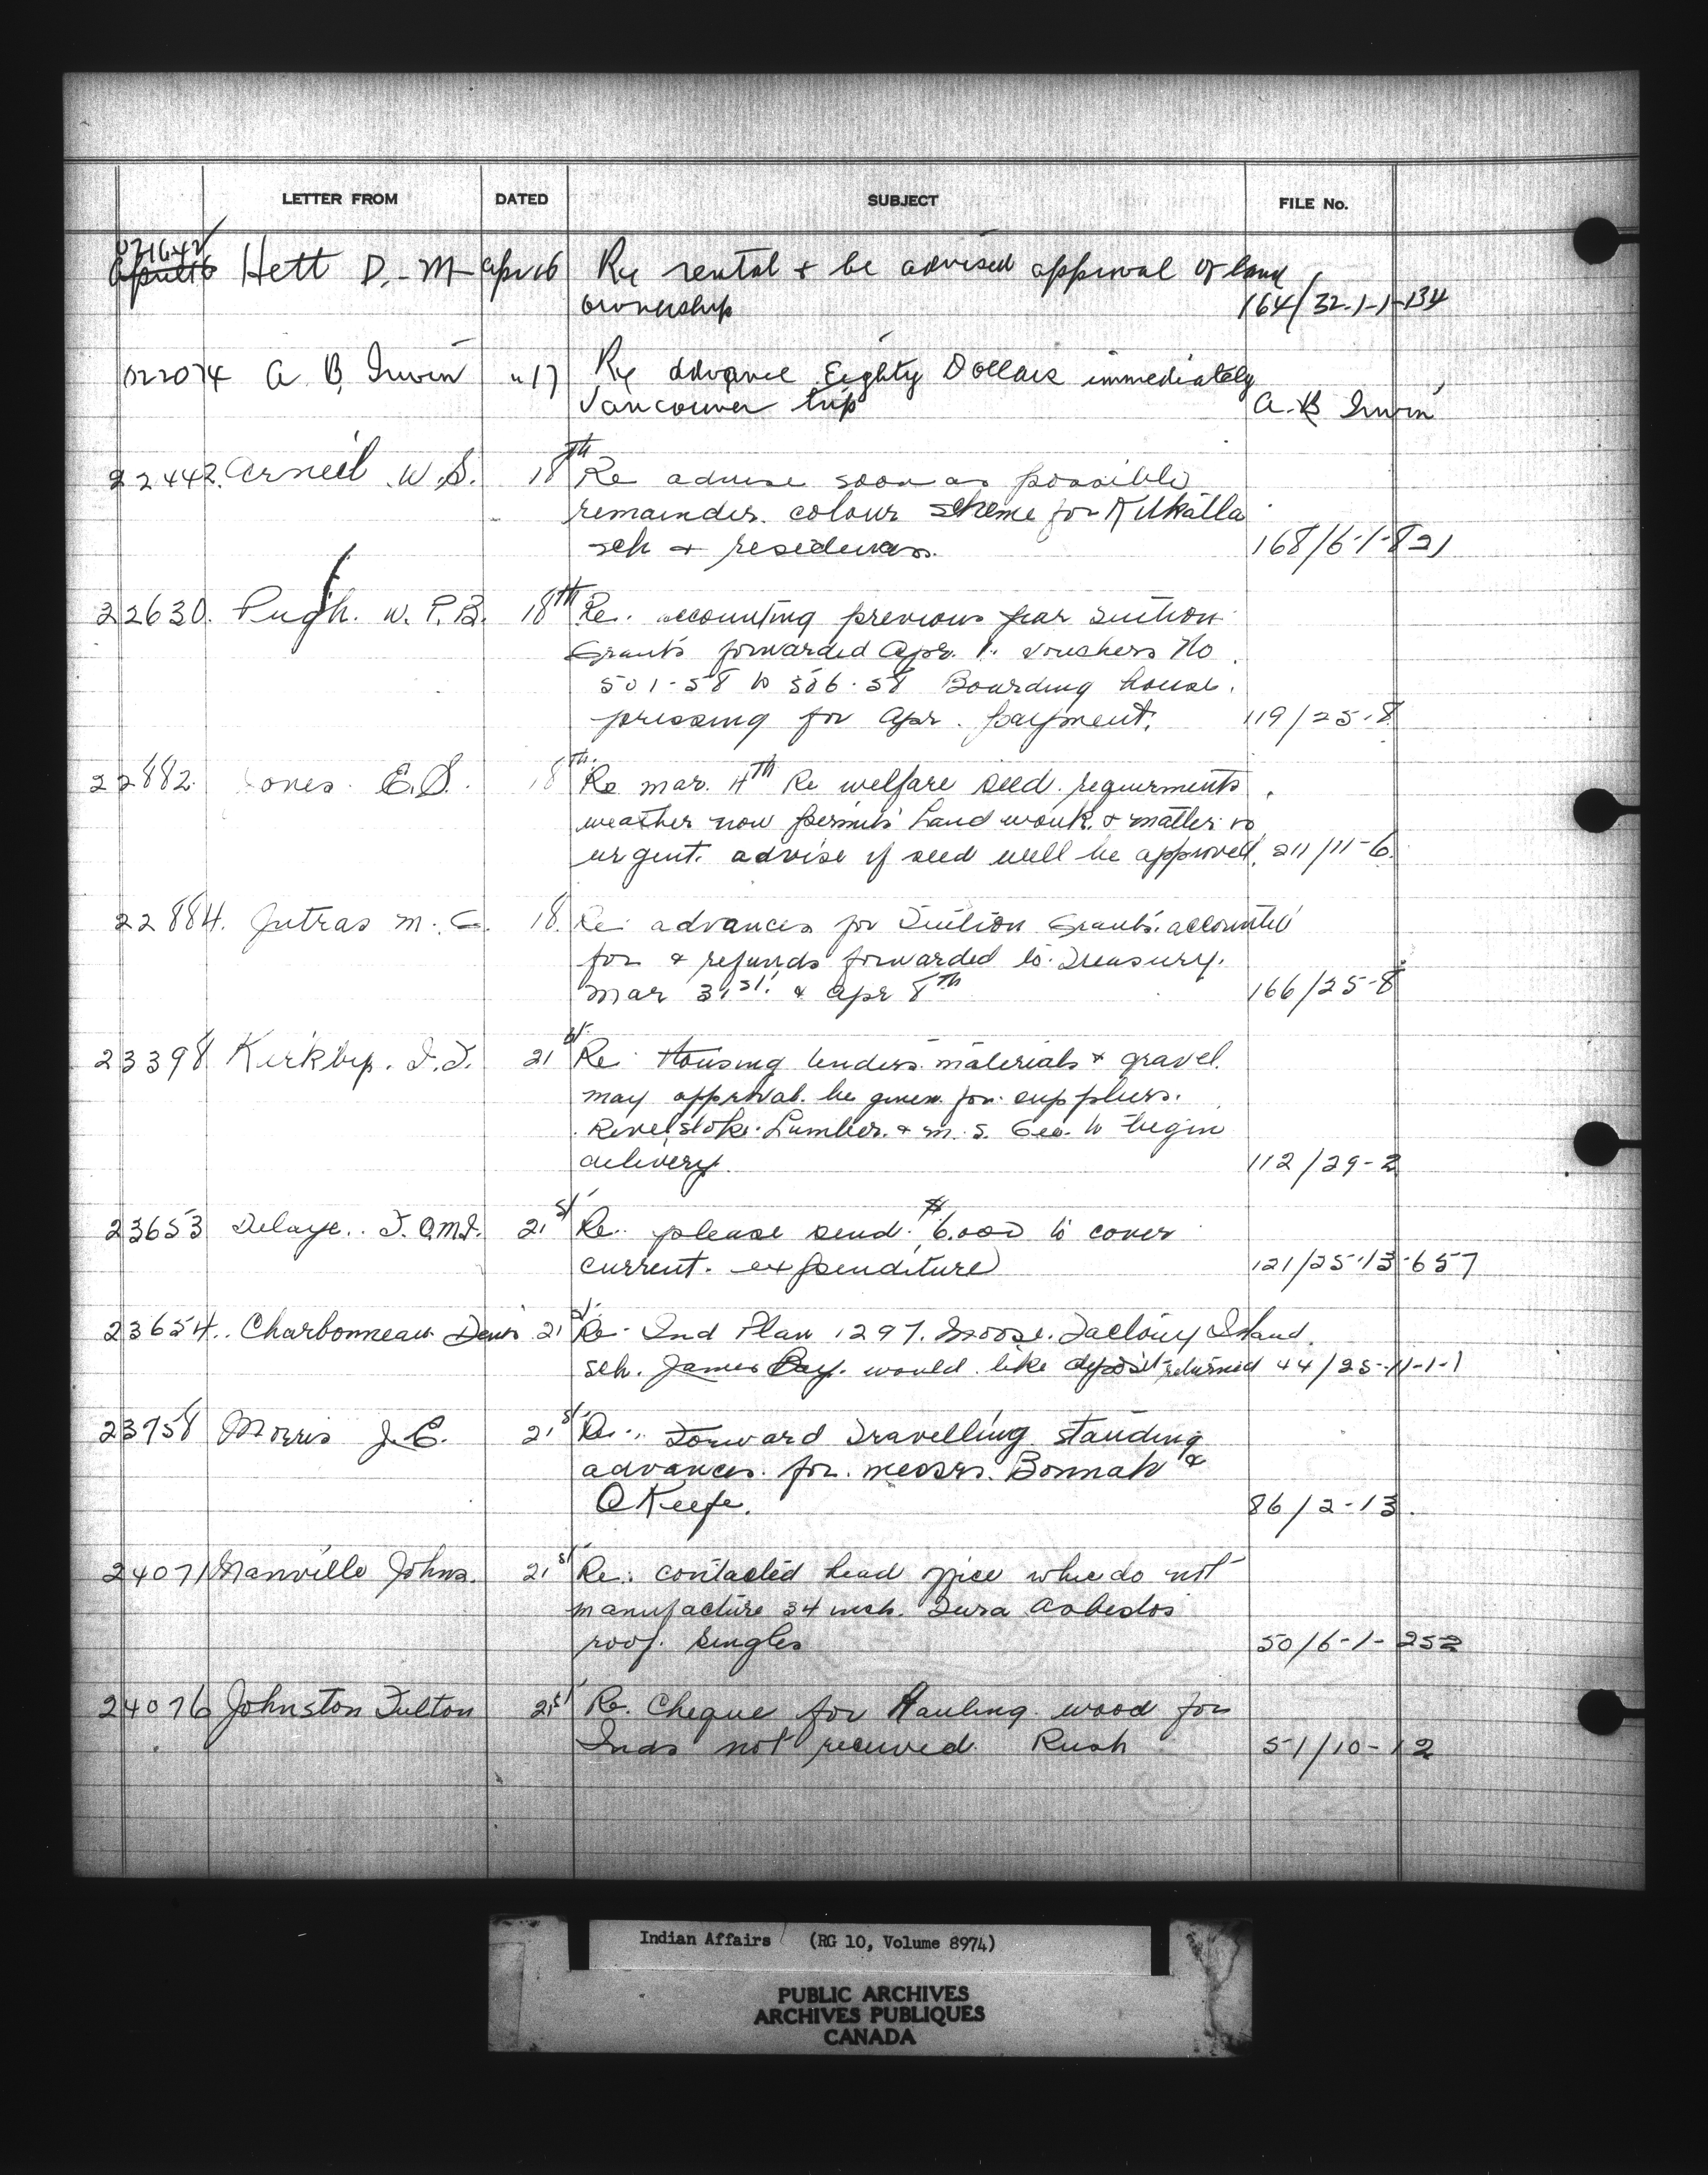 LETTER FROM DATED SUBJECT FILE No.
021642
April 16 Hett D. M Apr 16 Re rental & be advised approval of land
ownership 164/32-1-1-134
022074 A B Irwin " 17 Re advance Eighty Dollars immediately
Vancouver trip A. B Irwin
22442. Arneil W.S. 18th Re advise soon as possible
remainder. colour scheme for Kitkatla
sch & residences. 168/6-1-821
22630. Pugh. W.P.B. 18th Re. accounting previous year tuition
Grants forwarded Apr. 1. vouchers No.
501-58 to 506-58 Boarding house.
pressing for Apr. payment. 119/25-8
22882. Jones E.S. 18th Re Mar. 4th Re welfare seed requirments
weather now permits land work & matter is
urgent. advise if seed will be approved. 211/11-6.
22884. Jutras M. C. 18. Re advances for Tuition Grants. accounted
for & refunds forwarded to Treasury.
Mar 31st. & Apr 8th 166/25-8
23398 Kirkby. 21st Re Housing tenders materials & gravel.
may approval be given for suppliers.
Revelstoke Lumber & M.S. Geo. to begin
delivery. 112/29-2
23653 Delaye. 21st Re please send $6.000 to cover
current. expenditure 121/25-13-657
23654. Charbonneau Denis 21st Re Ind Plan 1297. Moose Factory Island.
sch. James Bay. would like deposit returned 44/25-11-1-1
23758 Morris J.E. 21st Re. Forward Travelling standing
advances for messrs. Bonnah &
O Keefe. 86/2-13.
24071 Manville Johns. 21st Re. contacted head office who do not
manufacture 34 inch. Dura Asbestos
roof singles 50/6-1-252
24076 Johnston Fulton 21st Re. Cheque for Hauling wood for
Inds not received Rush 51/10-12
Indian Affairs (RG 10, Volume 8974)
PUBLIC ARCHIVES
ARCHIVES PUBLIQUES
CANADA